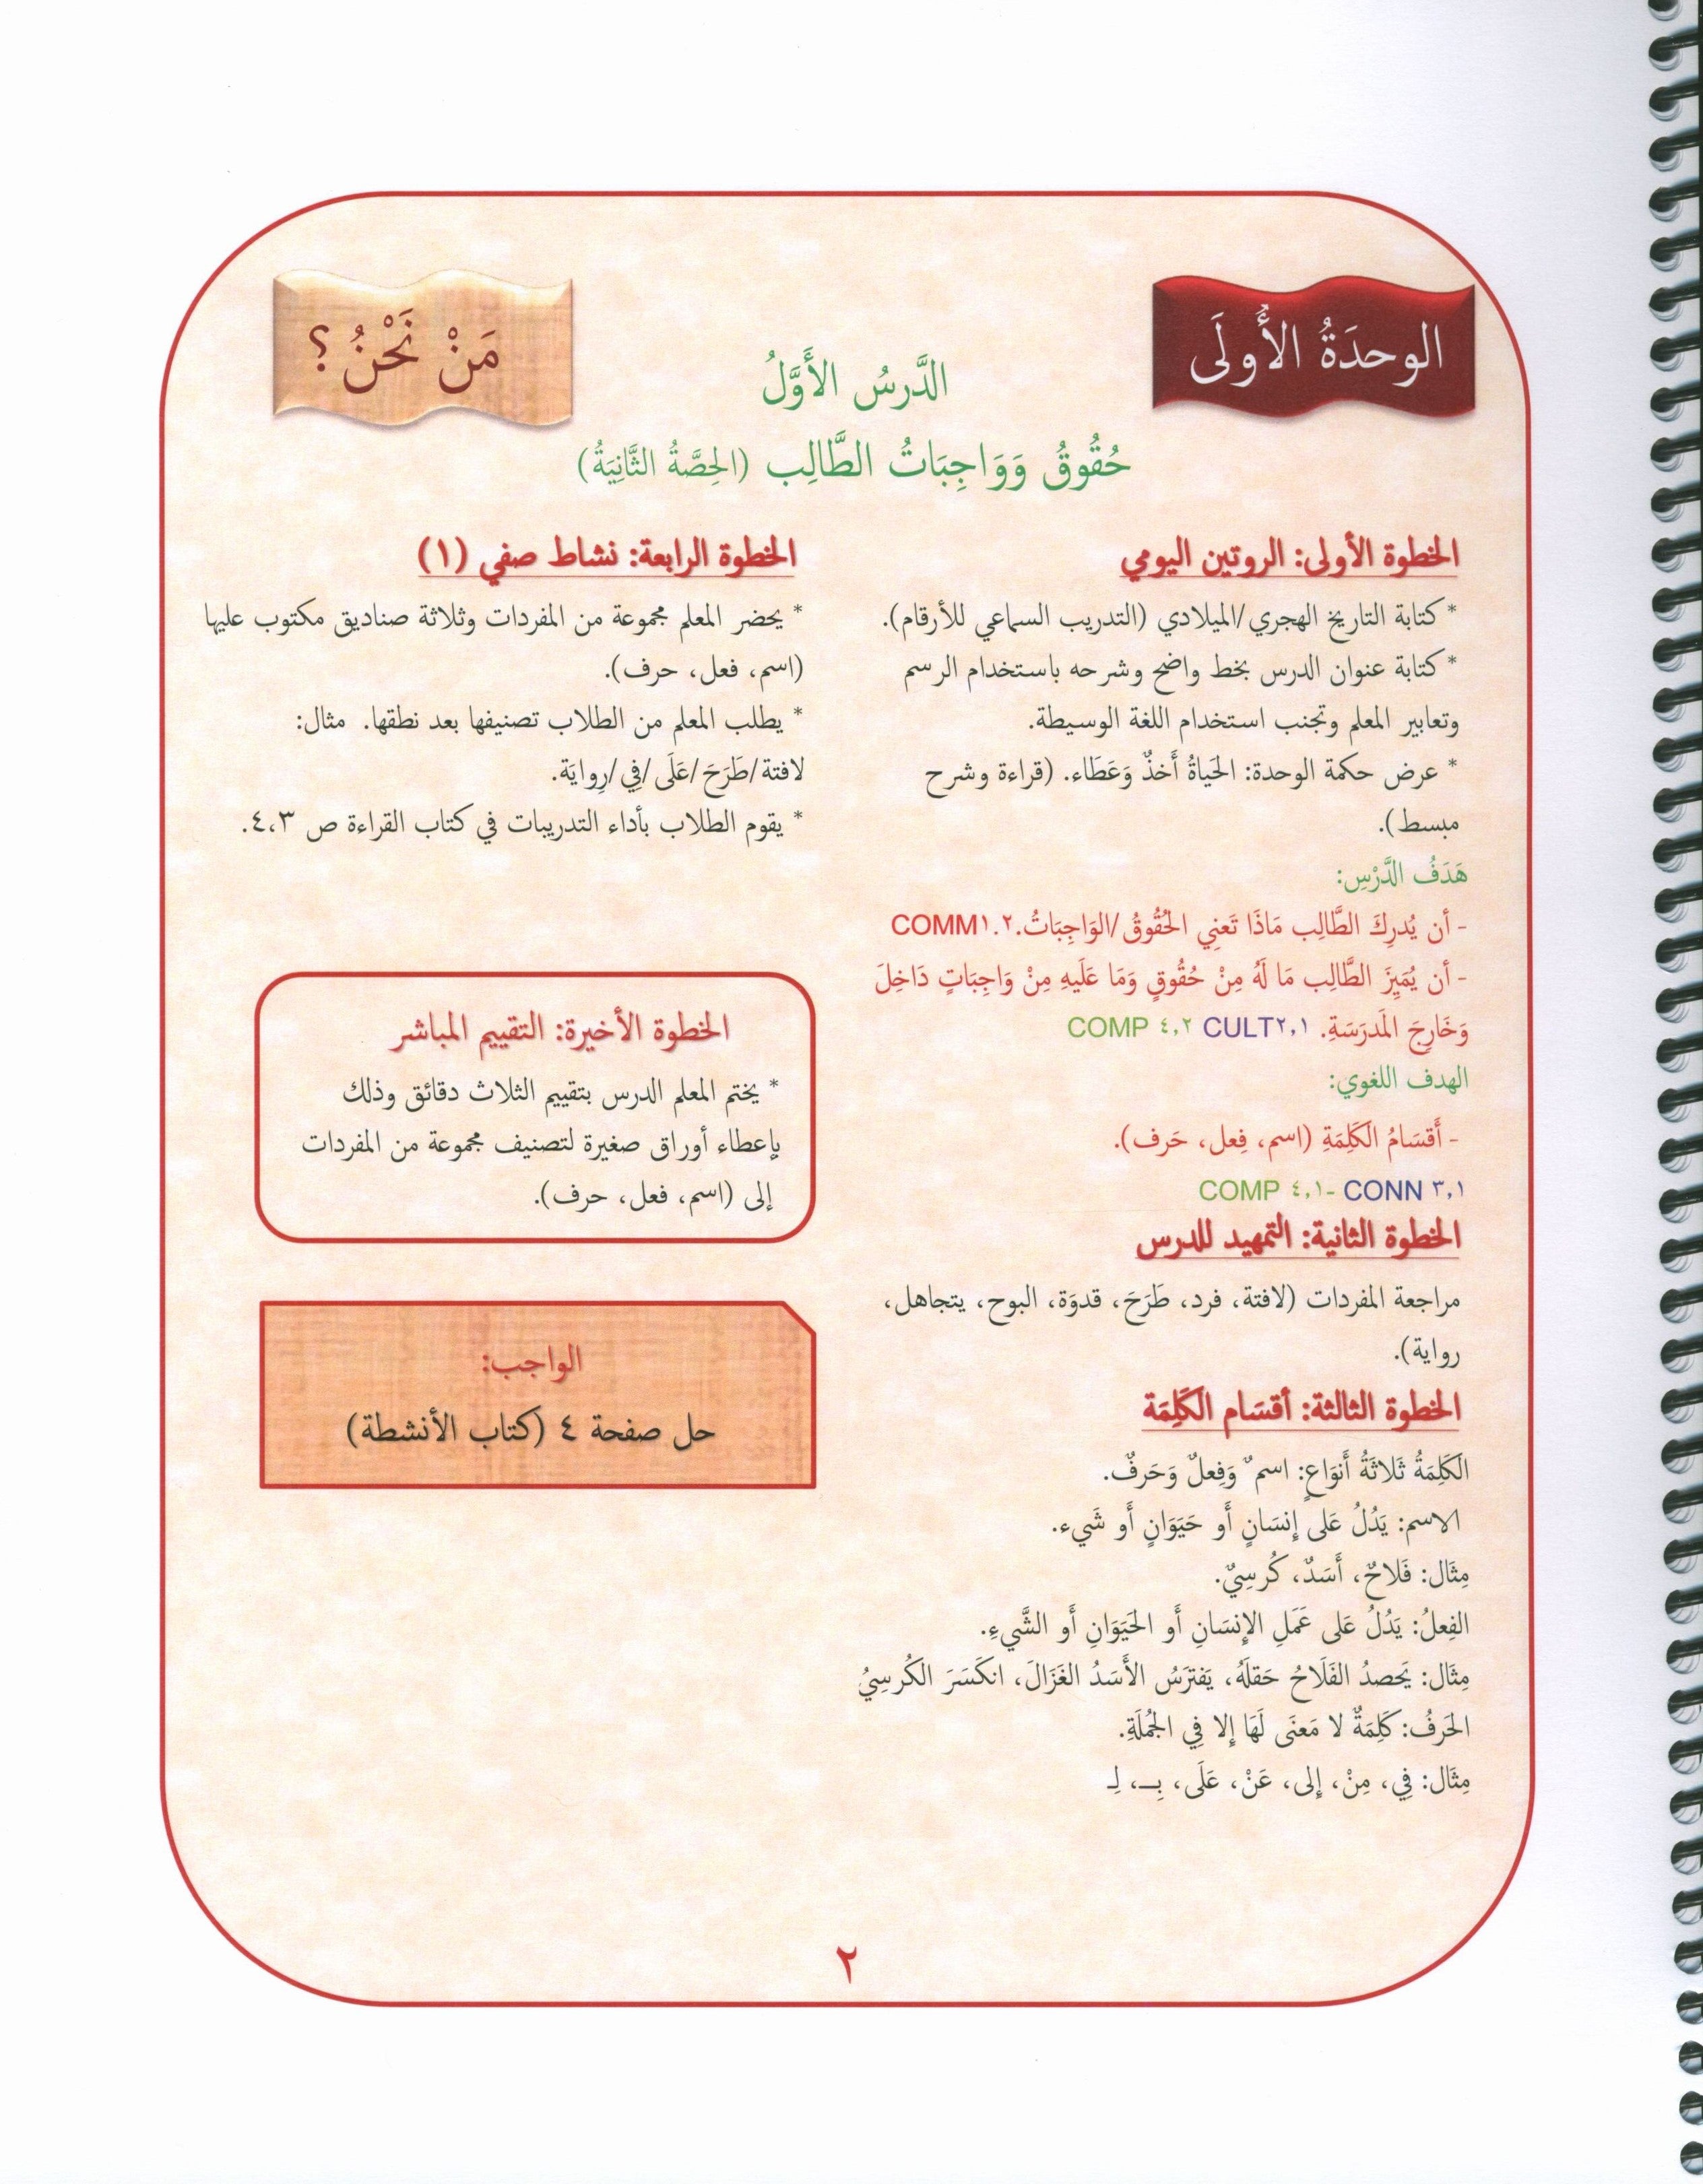 الوحدَةُ الأُولَى
مَنْ نَحْنُ؟
الدَّرسُ الأَوَّلُ
حُقُوقُ وَوَاجِبَاتُ الطَّالِب (الحِصَّةُ الثَّانِيَةُ)
الخطوة الأولى: الروتين اليومي
* كتابة التاريخ الهجري/الميلادي (التدريب السماعي للأرقام).
* كتابة عنوان الدرس بخط واضح وشرحه باستخدام الرسم
وتعابير المعلم وتجنب استخدام اللغة الوسيطة.
* عرض حكمة الوحدة: الحَياةُ أَخذٌ وَعَطَاء. (قراءة وشرح
مبسط).
هَدَفُ الدَّرْسِ:
- أن يُدرِكَ الطَّالِب مَاذَا تَعنِي الحُقُوقُ/الوَاجِبَاتُ.COMM١.٢
- أن يُمَيِزَ الطَّالِب مَا لَهُ مِنْ حُقُوقٍ وَمَا عَلَيهِ مِنْ وَاجِبَاتٍ دَاخِلَ
وَخَارِجَ المَدرَسَةِ. CULT٢,١ COMP ٤,٢
الهدف اللغوي:
- أَقسَامُ الكَلِمَةِ (اسم، فِعل، حَرف).
CONN ٣,١ -COMP ٤,١
الخطوة الثانية: التمهيد للدرس
مراجعة المفردات (لافتة، فرد، طَرَحَ، قدوَة، البوح، يتجاهل،
رواية).
الخطوة الثالثة: أقسَام الكَلِمَة
الكَلِمَةُ ثَلاثَةُ أَنوَاعٍ: اسمٌ وَفِعلٌ وَحَرفٌ.
الاسم: يَدُلُ عَلى إِنسَانٍ أَو حَيَوَانٍ أَو شَيء.
مِثَال: فَلاحٌ، أَسَدٌ، كُرسِيٌ.
الفِعلُ: يَدُلُ عَلى عَمَلِ الإِنسَانِ أَو الحَيَوَانِ أَو الشَّيءِ.
مِثَال: يَحصدُ الفَلَاحُ حَقلَهُ، يَفتَرسُ الأَسَدُ الغَزَالَ، انكَسَرَ الكُرسِيُ
الحَرفُ: كَلِمَةٌ لا مَعنَى لَهَا إلا فِي الجُملَةِ.
مِثَال: فِي، مِنْ، إِلى، عَنْ، عَلَى، بِــ، لِـ
الخطوة الرابعة: نشاط صفي (١)
* يحضر المعلم مجموعة من المفردات وثلاثة صناديق مكتوب عليها
(اسم، فعل، حرف).
* يطلب المعلم من الطلاب تصنيفها بعد نطقها. مثال:
لافتة/طَرَحَ/عَلَى/فِي/رِوايَة.
* يقوم الطلاب بأداء التدريبات في كتاب القراءة ص ٤،٣.
الخطوة الأخيرة: التقييم المباشر
* يختم المعلم الدرس بتقييم الثلاث دقائق وذلك
بإعطاء أوراق صغيرة لتصنيف مجموعة من المفردات
إلى (اسم، فعل، حرف).
الواجب:
حل صفحة ٤ (كتاب الأنشطة)
٢